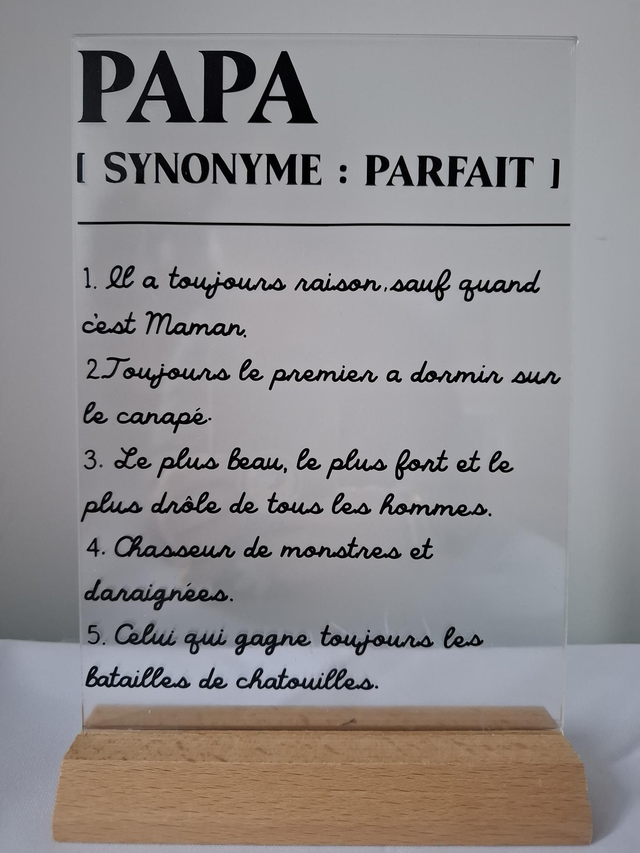 PAPA
[ SYNONYME : PARFAIT ]
1. Il a toujours raison, sauf quand
c'est Maman.
2.Toujours le premier a dormir sur
le canapé.
3. Le plus beau, le plus fort et le
plus drôle de tous les hommes.
4. Chasseur de monstres et
daraignées.
5. Celui qui gagne toujours les
batailles de chatouilles.